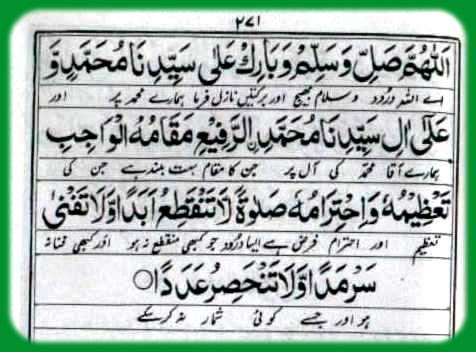 ۲۷۱
اَللّٰهُمَّ صَلِّ وَسَلِّمْ وَبَارِكْ عَلٰى سَيِّدِنَا مُحَمَّدٍ وَّ
اے اللہ درود و سلام بھیج اور برکتیں نازل فرما ہمارے محمد پر اور
عَلٰٓى اٰلِ سَيِّدِنَا مُحَمَّدِ ِۨالرَّفِيْعِ مَقَامُهُ الْوَاجِبِ
ہمارے آقا محمد کی آل پر جن کا مقام بہت بلند ہے جن کی
تَعْظِيْمُهٗ وَاِحْتِرَامُهٗ صَلٰوةً لَّا تَنْقَطِعُ اَبَدًا وَّلَا تَفْنٰى
تعظیم اور احترام فرض ہے ایسا درود جو کبھی منقطع نہ ہو اور کبھی فنا نہ
سَرْمَدًا وَّلَا تَنْحَصِرُ عَدَدًا
ہو اور جسے کوئی شمار نہ کرسکے